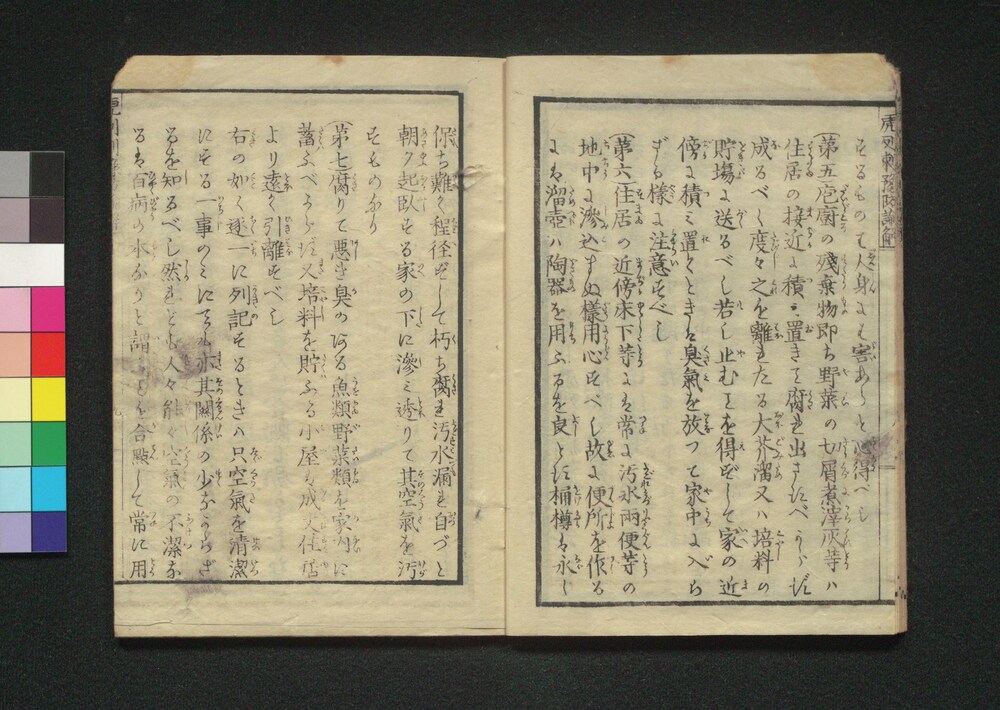 虎列刺豫防諭解
するものて人身にも害ありと心得へし
(第五庖廚の殘棄物即ち野菜の切屑煮滓灰等ハ
住居の接近に積ミ置きて腐れ出さすべからず
成るべく度々之を離れたる大芥溜又ハ培料の
貯塲に送るべし若し止むことを得ずして家の近
傍に積ミ置くときは臭氣を放つて家中に入ら
ざる樣に注意すべし
(第六住居の近傍床下等には常に汚水兩便等の
地中に滲込まぬ樣用心すべし故に便所を作る
には溜壺ハ陶器を用ふるを良とす桶樽は永く
保ち難く程徑ずして朽ち腐れ汚水漏れ自づと
朝夕起臥する家の下に滲ミ透りて其空氣を汚
すものなり
(第七腐りて悪き臭のある魚類野菜類を家内に
蓄ふべからず又培料を貯ふる小屋は成丈住居
より遠く引離すべし
右の如く逐一に列記するときハ只空氣を清潔
にする一事のミにても亦其關係の少なからざ
るを知るべし然れども人々能く空氣の不潔な
るは百病の本なりと謂ことを合點して常に用